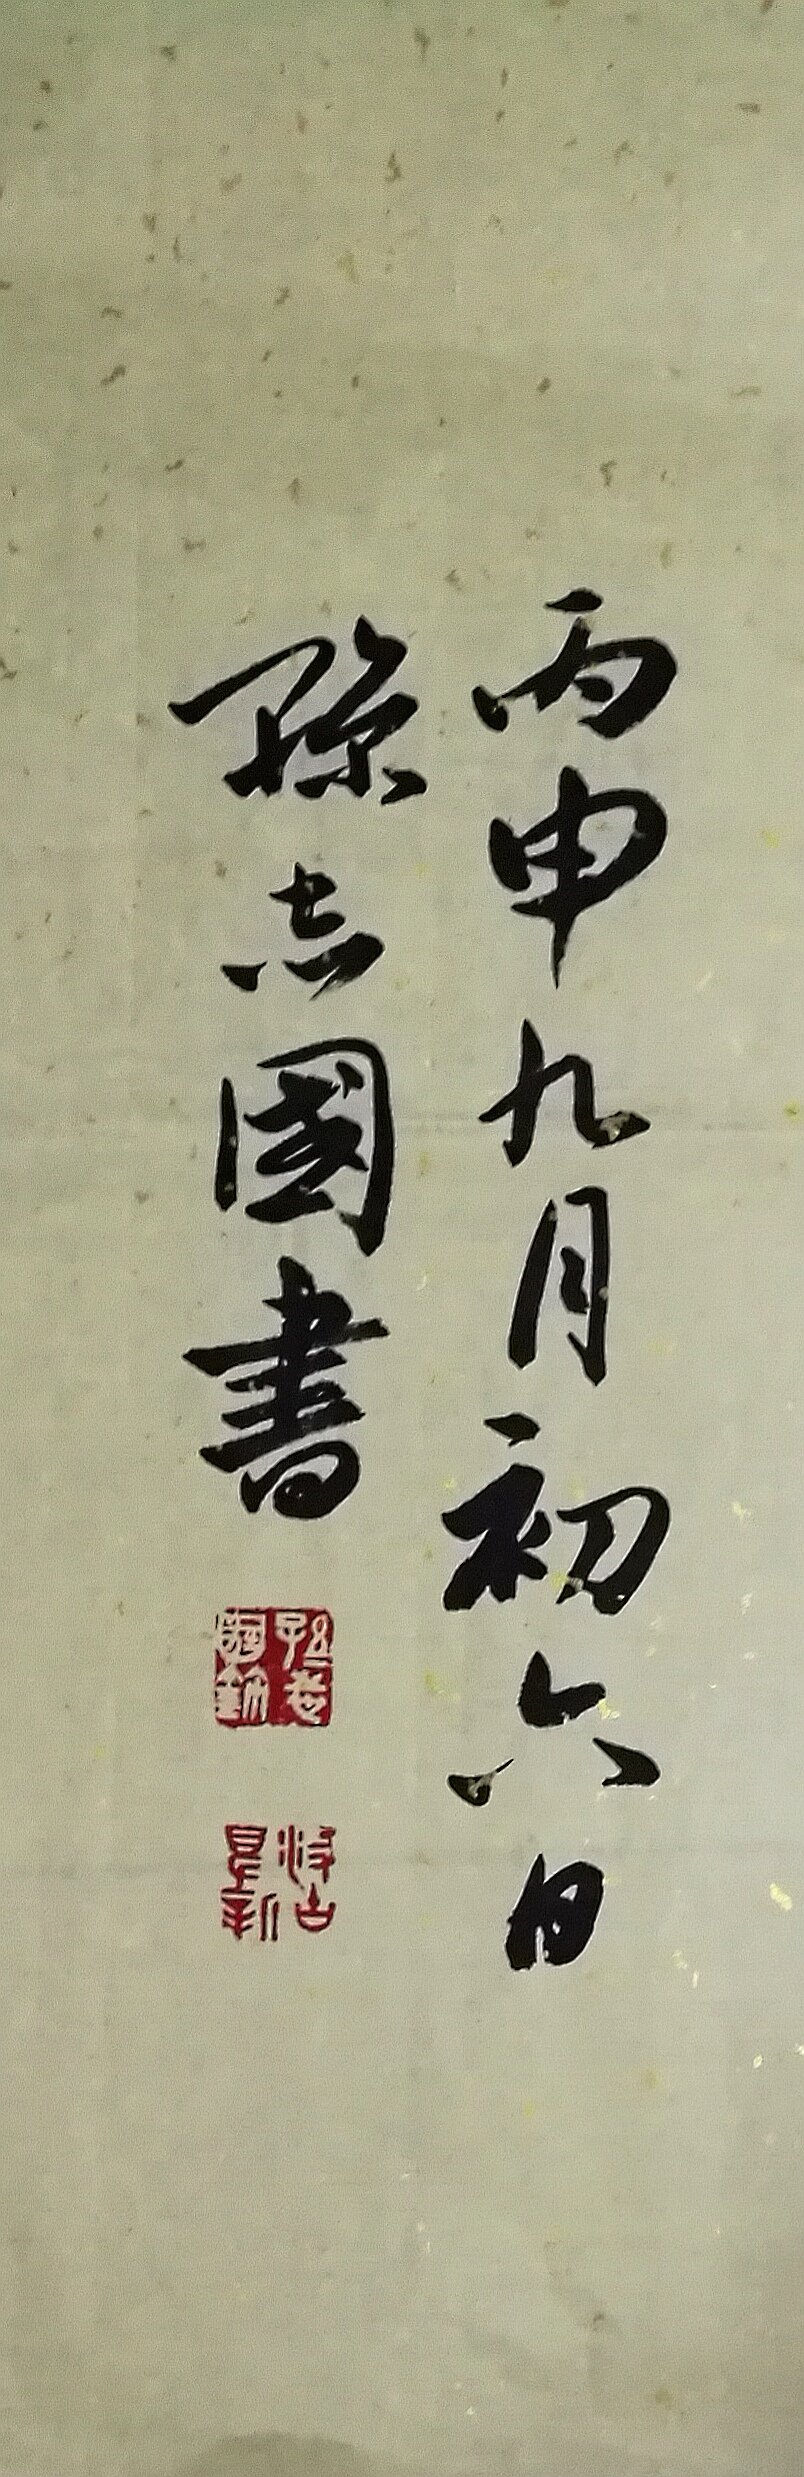 丙申九月初六日
孫志國書